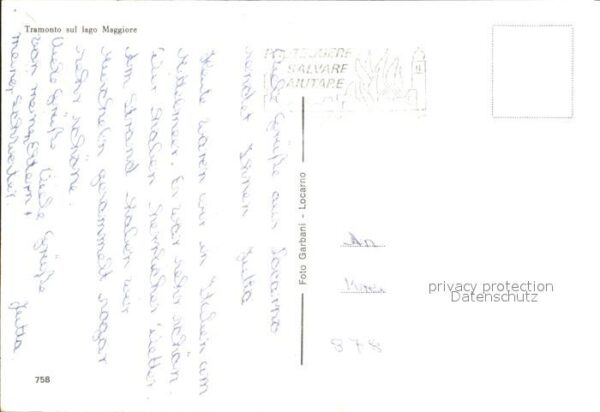 Tramonto sul lago Maggiore
PROTEGGERE
SALVARE
AIUTARE
Viele Grüße aus Locarno
sendet Ihnen Jutta
Heute waren wir in Italien am
Mittelmeer. Es war sehr schön.
Wir haben herrliches Wetter.
Am Strand haben wir
Muscheln gesammelt sogar
sehr schöne.
Viele Grüße Viele Grüße Jutta
von meinen Eltern +
meiner Schwester.
Foto Garbani - Locarno
An
878
privacy protection
Datenschutz
758